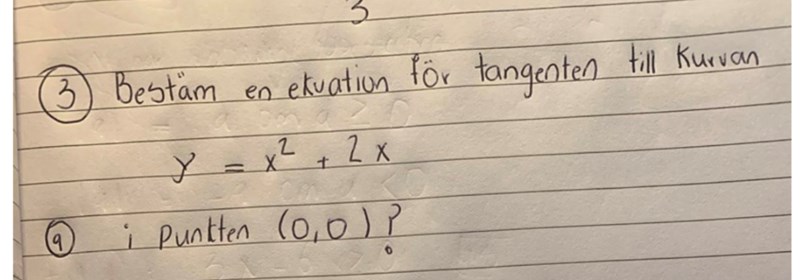 3
③ Bestäm en ekvation för tangenten till kurvan
y = x² + 2x
ⓐ i punkten (0,0)?